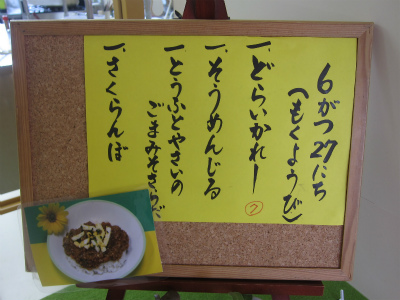 6がつ27にち
(もくようび)
一、どらいかれー
ク
一、そうめんじる
一、とうふとやさいの
ごまみそさらだ
一、さくらんぼ